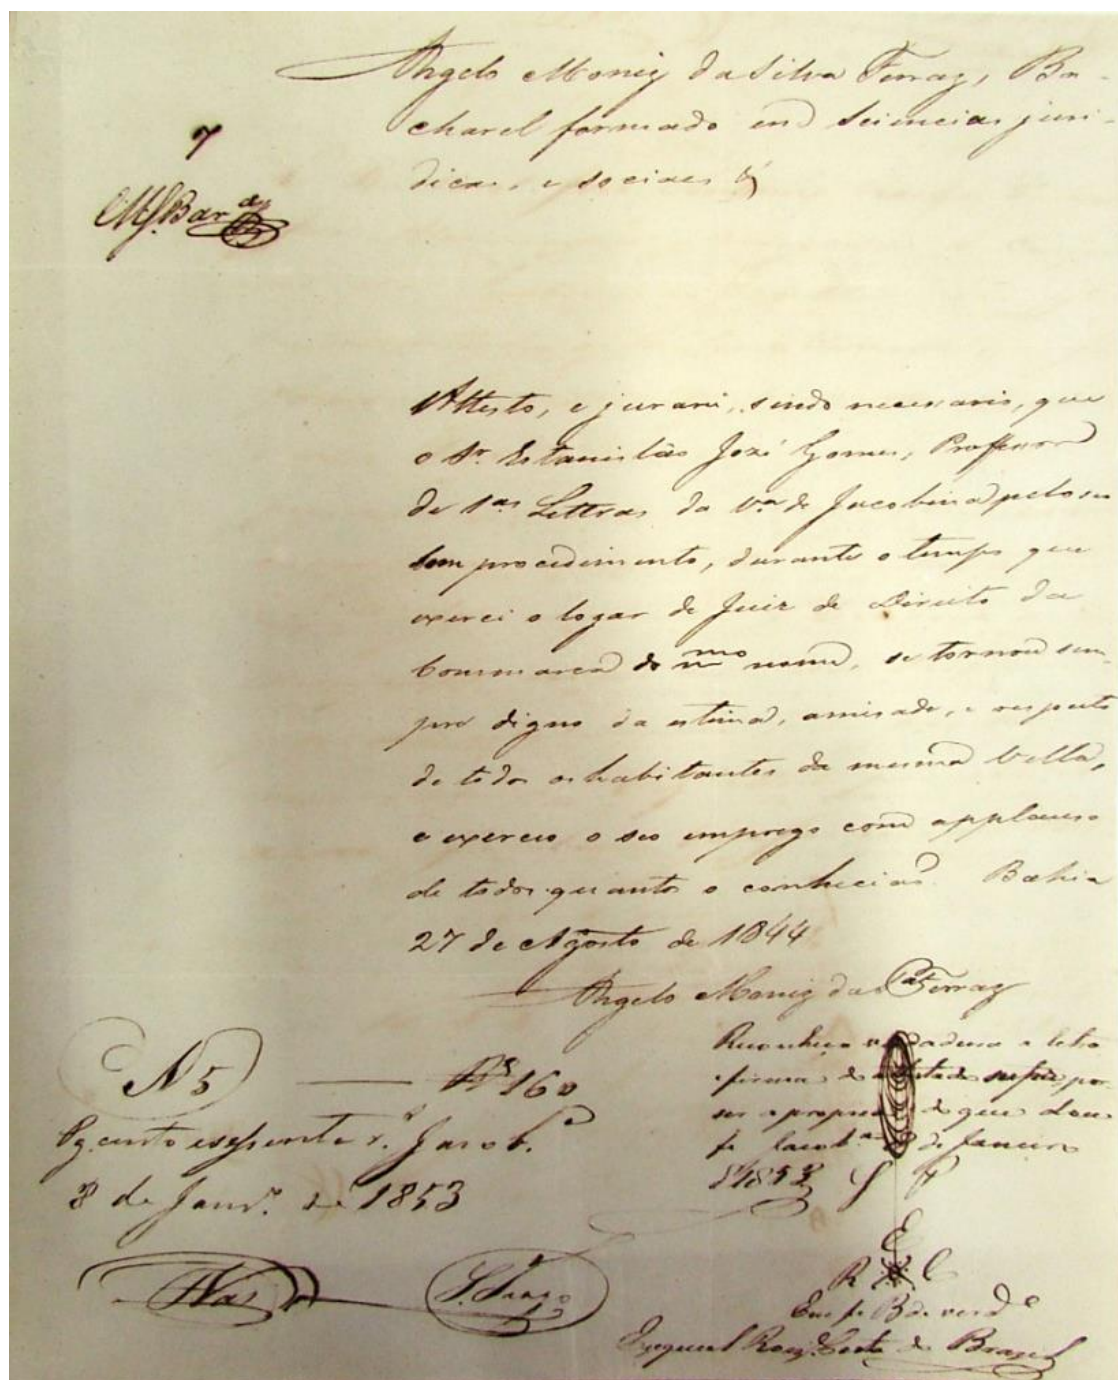 Angelo Moniz da Silva Ferraz, Ba-
charel formado em Sciencias juri-
dicas, e sociaes &
7
Attesto, e jurarei, sendo necessario, que
o Sr. Estanislão José Gomes, Professor
de 1as Lettras da Va de Jacobina pelo seu
bom procedimento, durante o tempo que
exerci o logar de Juiz de Direito da
Commarca do mmo nome, se tornou sem-
pre digno da estima, amisade, e respeito
de todos os habitantes da mesma Villa,
e exerceo o seo emprego com applauso
de todos quanto o conhecião Bahia
27 de Agosto de 1844
Angelo Moniz da Sa Ferraz
N5 Rs 160
Pg cento e sessenta rs. Jacob.a
8 de Janro. de 1853
Reconheço verdadeira a letra
e firma do attestado supra por
ser a propria de que dou
fé Jacoba de Janeiro
1853
Em fé de verde
Ezequiel Roiz Costa do Brazil